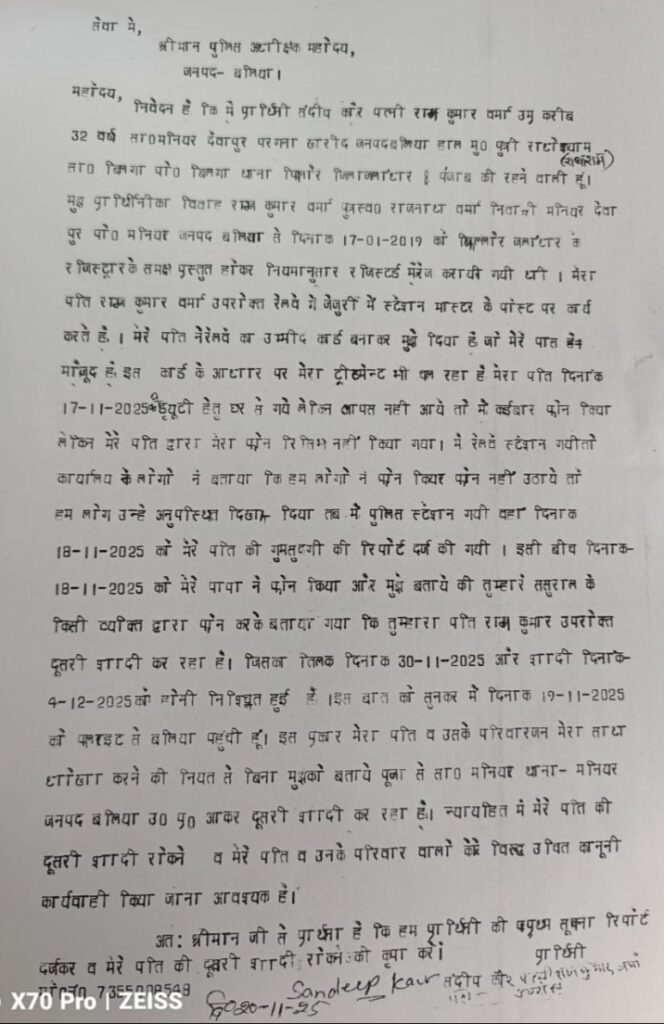 सेवा मे,
श्रीमान पुलिस अधीक्षक महोदय,
जनपद- बलिया।
महोदय,
निवेदन है कि मे प्रार्थिनी संदीप कौर पत्नी राम कुमार वर्मा उम्र करीब
32 वर्ष सा0मनियर देवापुर परगना खरीद जनपदबलिया हाल मु0 पुत्री राधेश्याम
(राजाराम)
सा0 बिलगा पो0 बिलगा थाना फिलौर जिलाजालंधर पंजाब की रहने वाली हूं।
मुझ प्रार्थिनीका विवाह राम कुमार वर्मा पुत्रस्व0 राजनाथ वर्मा निवासी मनियर देवा
पुर पो0 मनियर जनपद बलिया से दिनांक 17-01-2019 को फिल्लौर जलांधर के
रजिस्ट्रारके समक्ष प्रस्तुत होकर नियमानुसार रजिस्टर्ड मैरेज करायी गयी थी । मेरा
पति राम कुमार वर्मा उपरोक्त रेलवे मे जेजुरी में स्टेशन मास्टर के पोस्ट पर कार्य
करते है, । मेरे पति नेरेलवे का उम्मीद कार्ड बनाकर मुझे दिया है,जो मेरे पास
मौजूद है, इस कार्ड के आधार पर मेरा ट्रीटमेन्ट भी चल रहा है मेरा पति दिनांक
17-11-2025को ड्यूटी हेतु घर से गये लेकिन वापस नही आये तो मै कईबार फोन किया
लेकिन मेरे पति द्वारा मेरा फोन रिसिभ नहीं किया गया। मै रेलवे स्टेशन गयीतो
कार्यालय के लोगो ने बताया कि हम लोगो ने फोन किया फोन नहीं उठाये तो
हम लोग उन्हे अनुपस्थित दिखा दिया तब मै पुलिस स्टेशन गयी वहां दिनांक
18-11-2025 को मेरे पति की गुमसुदगी की रिपोर्ट दर्ज की गयी । इसी बीच दिनांक-
18-11-2025 को मेरे पापा ने फोन किया और मुझे बताये की तुम्हारे ससुराल के
किसी व्यक्ति द्वारा फोन करके बताया गया कि तुम्हारा पति राम कुमार उपरोक्त
दूसरी शादी कर रहा है। जिसका तिलक दिनांक 30-11-2025 और शादी दिनांक-
4-12-2025को होनी निश्चित हुई है ।इस बात को सुनकर मै दिनांक 19-11-2025
को फ्लाइट से बलिया पहुंची हूं। इस प्रकार मेरा पति व उसके परिवारजन मेरा साथ
धोखा करने की नियत से बिना मुझको बताये पूजा से सा0 मनियर थाना- मनियर
जनपद बलिया उ0 प्र0 आकर दूसरी शादी कर रहा है। न्यायहित मे मेरे पति की
दूसरी शादी रोकने व मेरे पति व उनके परिवार वालो के विरूद्ध उचित कानूनी
कार्यवाही किया जाना आवश्यक है।
अत: श्रीमान जी से प्रार्थना है कि हम प्रार्थिनी की प्रथम सूचना रिपोर्ट
दर्जकर व मेरे पति की दूसरी शादी रोकने की कृपा करें। प्रार्थिनी
Sandeep Kaur संदीप कौर पत्नी राम कुमार वर्मा
दि020-11-25
X70 Pro | ZEISS